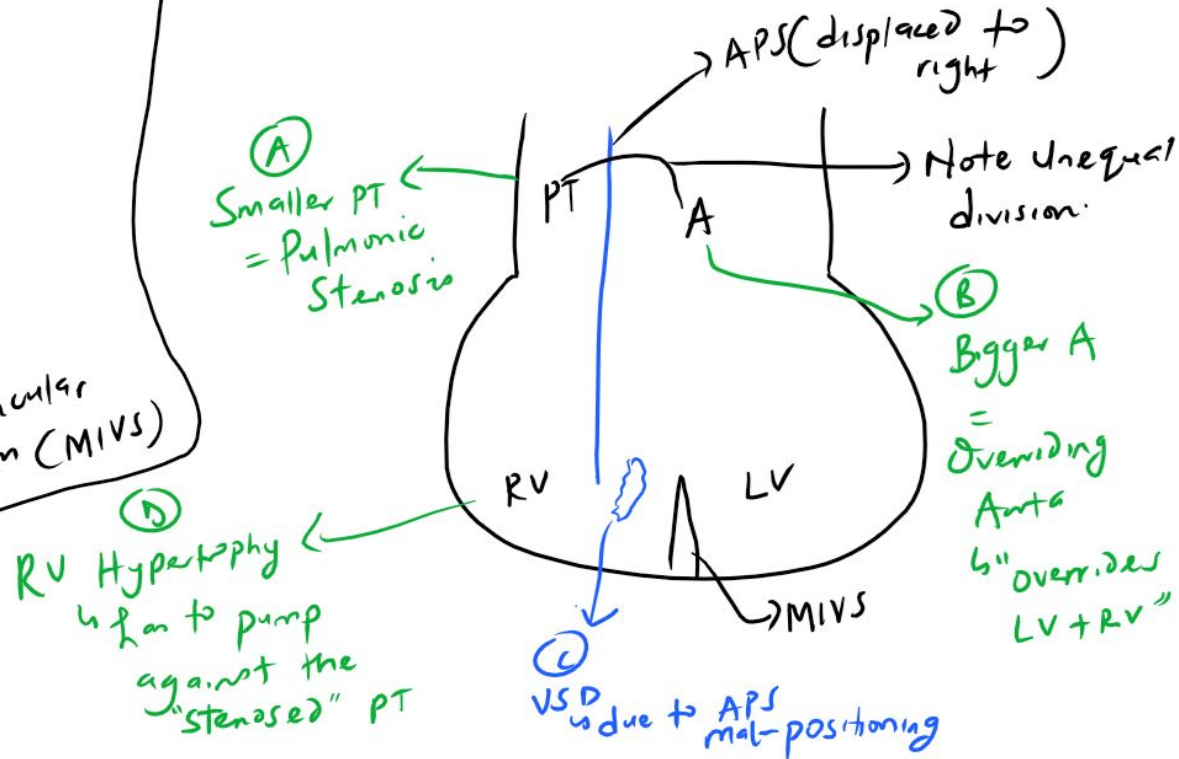 APS (displaced to
right)
Note Unequal
division.
A
Smaller PT
= Pulmonic
Stenosis
PT
A
B
Bigger A
=
Overriding
Aorta
↳ "overrides
LV + RV"
cular
n (MIVS)
RV
LV
D
RV Hypertophy
↳ has to pump
against the
"stenosed" PT
MIVS
C
VSD
↳ due to APS
mal-positioning